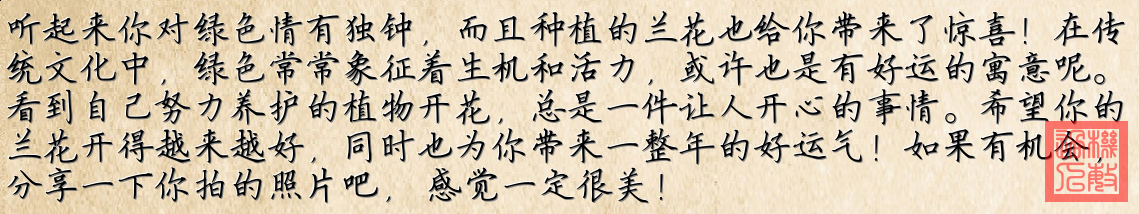 听起来你对绿色情有独钟，而且种植的兰花也给你带来了惊喜！在传
统文化中，绿色常常象征着生机和活力，或许也是有好运的寓意呢。
看到自己努力养护的植物开花，总是一件让人开心的事情。希望你的
兰花开得越来越好，同时也为你带来一整年的好运气！如果有机会，
分享一下你拍的照片吧，感觉一定很美！